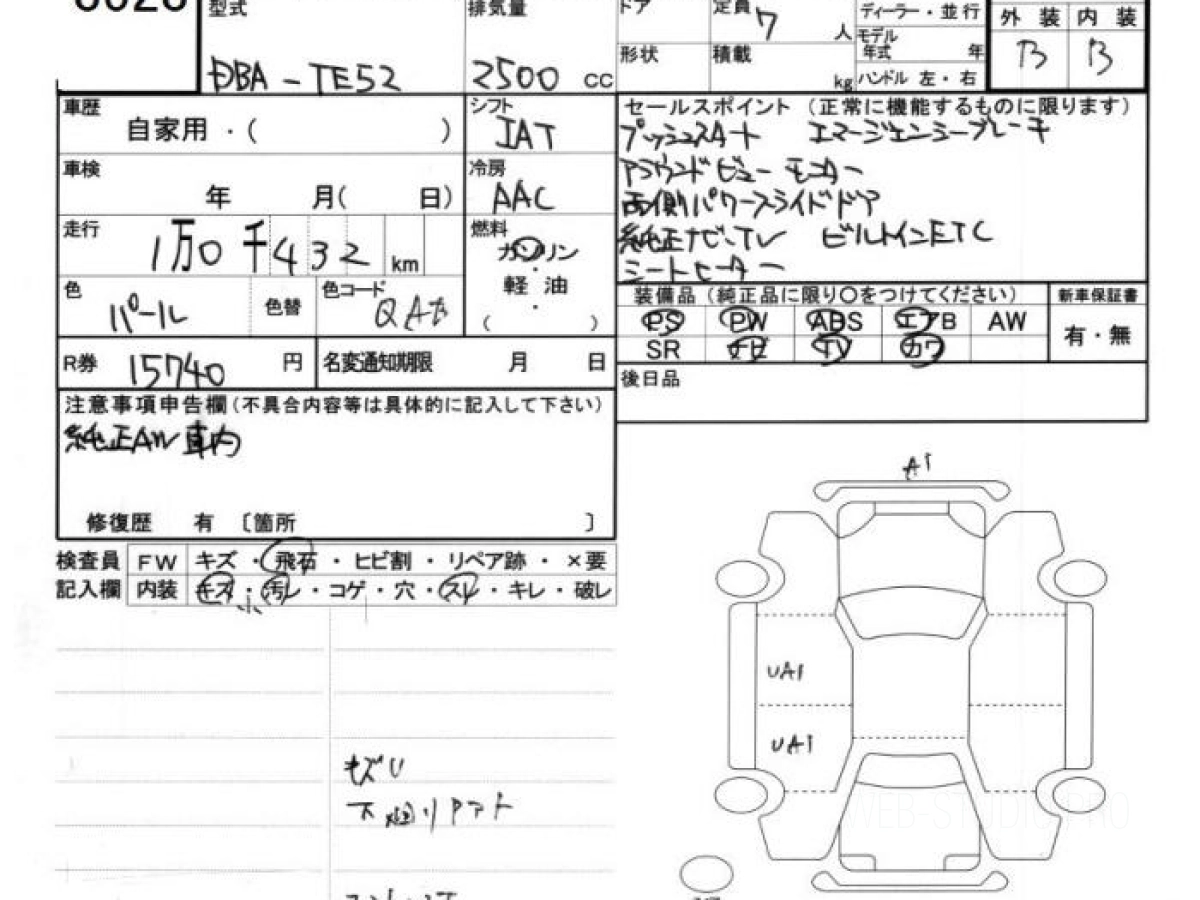 型式 排気量 ドア 定員 7 人 ディーラー・並行 外装 内装
DBA-TE52 2500 CC 形状 積載 kg モデル年式 年 ハンドル 左・右 B B
車歴 自家用・( )
シフト IAT
セールスポイント (正常に機能するものに限ります)
プッシュスタート エマージェンシーブレーキ
車検 年 月( 日)
冷房 AAC
アラウンドビューモニター
両側パワースライドドア
走行 1万0千432 km
燃料 ガソリン
軽油
( )
純正ナビ・TV ビルトインETC
シートヒーター
色 パール 色替 色コード QAB
装備品 (純正品に限り○をつけてください) 新車保証書
PS PW ABS エアB AW 有・無
SR ナビ TV カワ
R券 15740 円 名変通知期限 月 日
後日品
注意事項申告欄(不具合内容等は具体的に記入して下さい)
純正AW車内
修復歴 有 〔箇所 〕
検査員 FW キズ・飛石・ヒビ割・リペア跡・×要
記入欄 内装 キズ・汚レ・コゲ・穴・スレ・キレ・破レ
小
A1
UA1
UA1
キズU
下廻リ
WEB-STUDIO.PRO